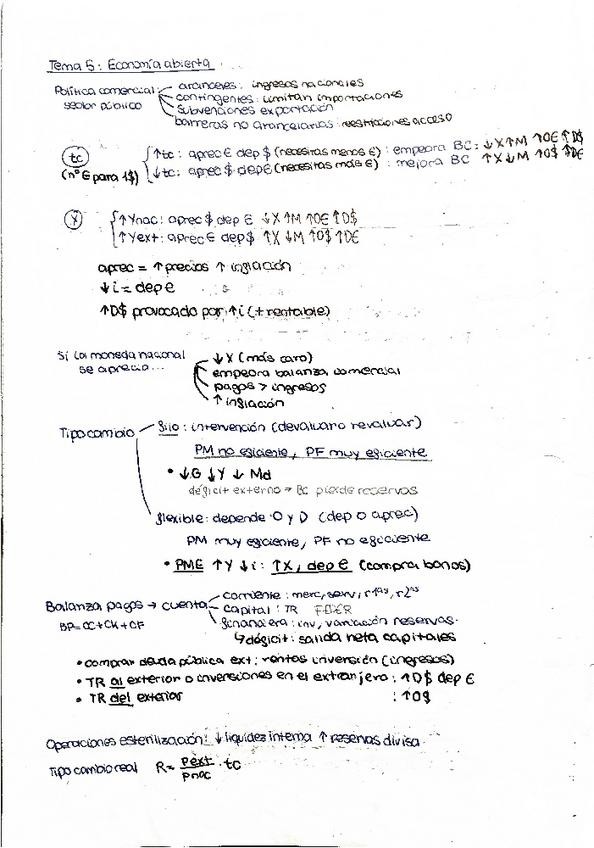 Tema 5: Economía abierta
Política comercial sector público
aranceles: ingresos nacionales
contingentes: limitan importaciones
subvenciones exportación
barreras no arancelarias: restricciones acceso
tc (nº € para 1$)
↑tc: aprec € dep $ (necesitas menos €): empeora BC: ↓X ↑M ↑O€ ↑D$
↓tc: aprec $ dep € (necesitas más €): mejora BC ↑X ↓M ↑O$ ↑D€
Y
↑Ynac: aprec $ dep € ↓X ↑M ↑O€ ↑D$
↑Yext: aprec € dep $ ↑X ↓M ↑O$ ↑D€
aprec = ↑ precios ↑ inflación
↓i = dep €
↑D$ provocado por ↑i (+ rentable)
Si la moneda nacional se aprecia...
↓X (más caro)
empeora balanza comercial
pagos > ingresos
↑ inflación
Tipo cambio
fijo: intervención (devaluar o revaluar)
PM no eficiente, PF muy eficiente
• ↓G ↓Y ↓ Md
déficit externo → BC pierde reservas
flexible: depende O y D (dep o aprec)
PM muy eficiente, PF no eficiente
• PME ↑Y ↓i: ↑X, dep € (compra bonos)
Balanza pagos → cuenta
BP=CC+CK+CF
corriente: merc, serv, r1as, r2as
capital: TR FEDER
financiera: inv, variación reservas.
↳ déficit: salida neta capitales
• comprar deuda pública ext: rentas inversión (ingresos)
• TR al exterior o inversiones en el extranjero: ↑D$ dep €
• TR del exterior : ↑O$
Operaciones esterilización: ↓ liquidez interna ↑ reservas divisa.
Tipo cambio real R = Pext/Pnac · tc